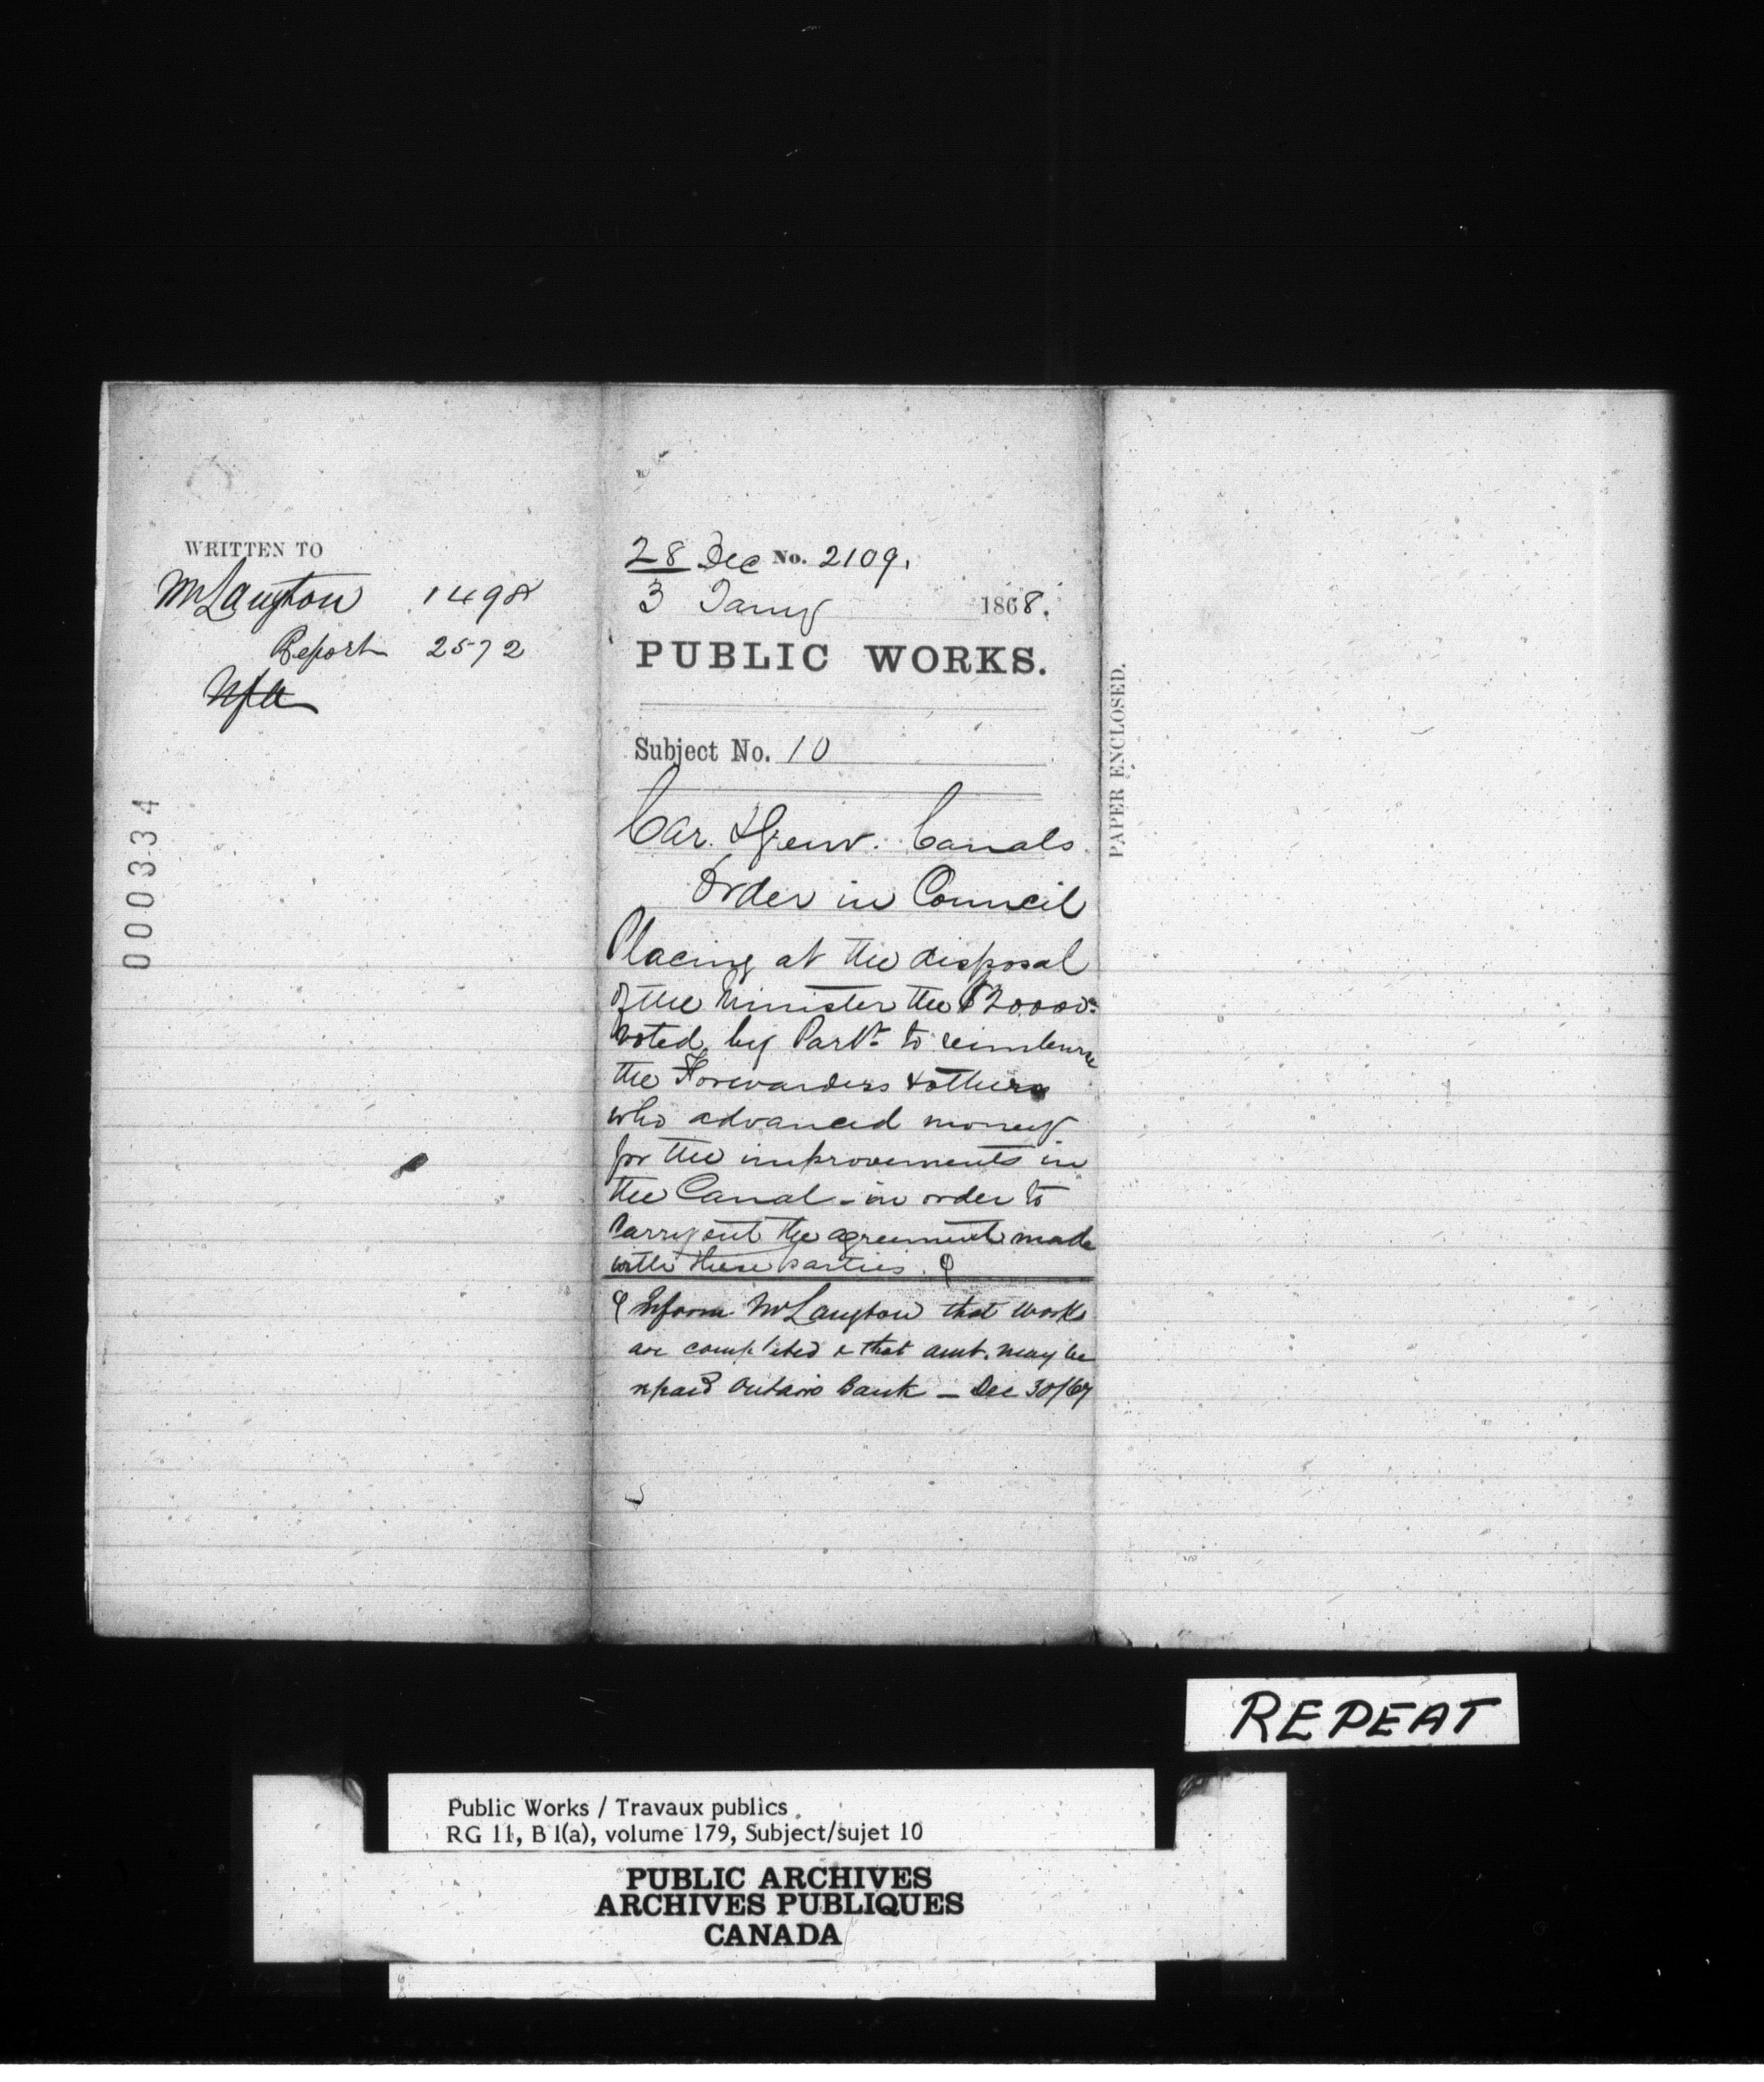 WRITTEN TO
Mr Langton 1498
Report 2572
000334
28 Dec No. 2109.
3 Jany 1868.
PUBLIC WORKS.
Subject No. 10
Car. & Genv. Canals
Order in Council
Placing at the disposal
of the Minister the $20,000
voted by Parlt. to reimburse
the Forwarders & others
who advanced money
for the improvements in
the Canal - in order to
carry out the agreement made
with these parties.
Inform Mr Langton that works
are completed & that amt. may be
repaid Ontario Bank — Dec 30/67
PAPER ENCLOSED.
REPEAT
Public Works / Travaux publics
RG 11, B 1(a), volume 179, Subject/sujet 10
PUBLIC ARCHIVES
ARCHIVES PUBLIQUES
CANADA